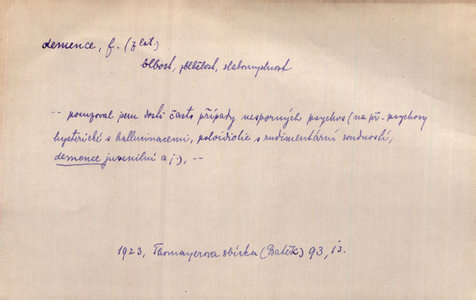 demence, f. (z lat.)
blbost, pblbělost, slabomyslnost
-- pozoroval jsem dosti často případy nesporných psychos (na př. psychosy
hysterické s hallucinacemi, poloidiotie s rudimentární soudností,
demence juvenilní a j.), --
1923, Thomayerova sbírka (Baták) 93, is.